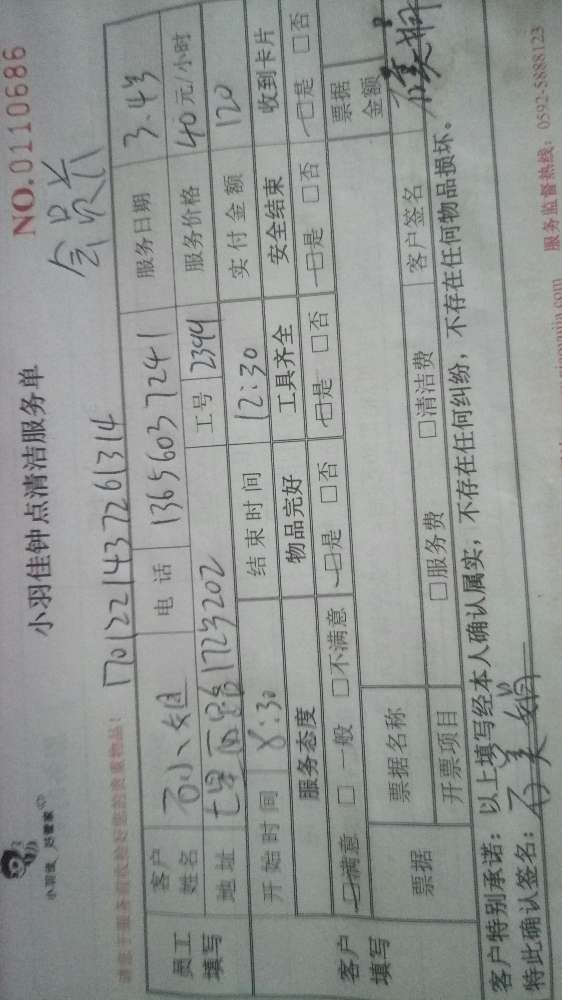 小羽佳 好管家
小羽佳钟点清洁服务单
NO.0110686
请您于服务前收拾好您的贵重物品!
170122143726 1314
会员六
员工填写
客户姓名 石小姐 电话 13656037241 服务日期 3.43
地址 七星西路1723202 工号 2344 服务价格 40元/小时
开始时间 8:30 结束时间 12:30 实付金额 120
客户填写
服务态度 物品完好 工具齐全 安全结束 收到卡片
□满意 □一般 □不满意 □是 □否 □是 □否 □是 □否 □是 □否
票据 票据名称 票据金额
开票项目 □服务费 □清洁费 客户签名
客户特别承诺:以上填写经本人确认属实,不存在任何纠纷,不存在任何物品损坏。
特此确认签名:石美娟
服务监督热线:0592-5888123